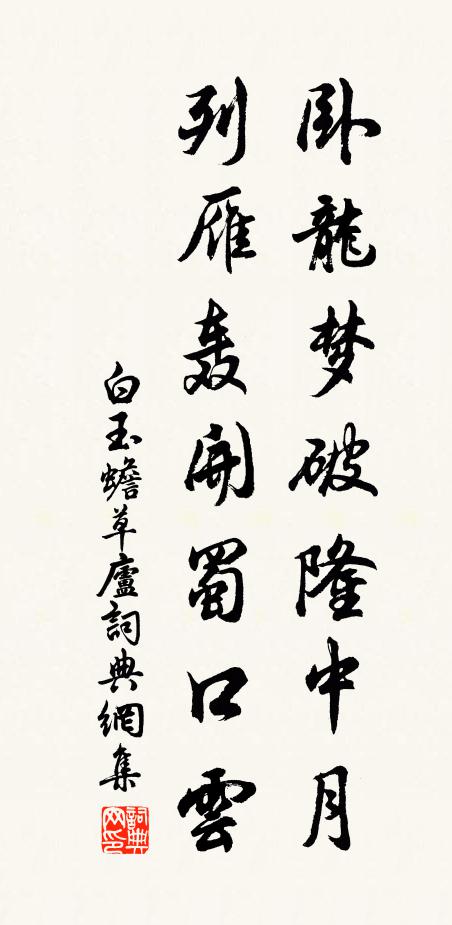 卧龍梦破隆中月
列雁轰開蜀口雲
白玉蟾草廬詞典網集
詞典网印